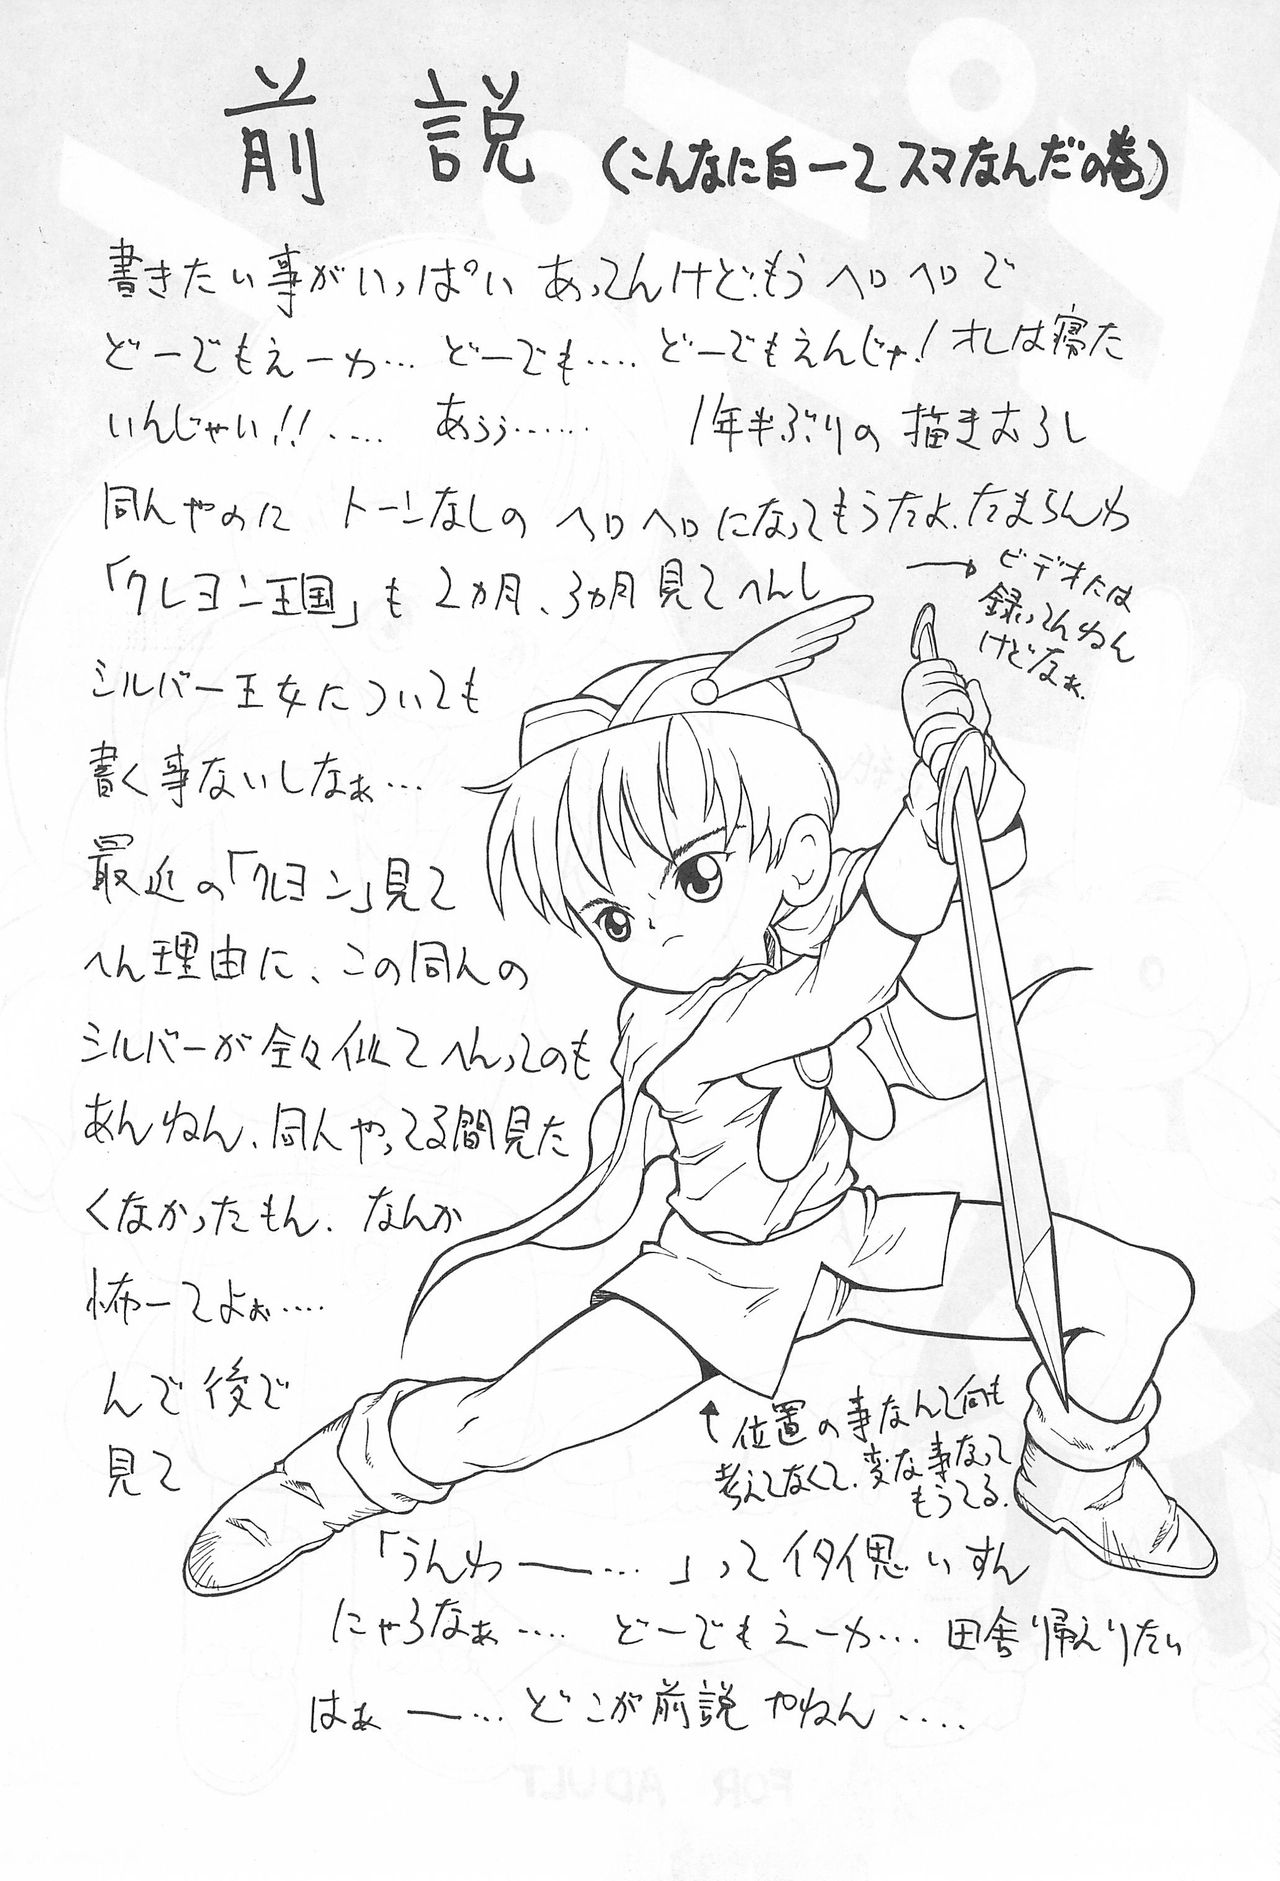 前説 (こんなに白ーてスマなんだの巻)
書きたい事がいっぱい あってんけど、もう ヘロ ヘロ で
どーでもえーわ… どーでも…. どーでもえんじゃ!オレは寝た
いんじゃい!!.... あぅぅ…… 1年半ぶりの 描きおろし
同人やのに トーンなしの ヘロ ヘロ になってもうたよ.たまらんわ
「クレヨン王国」も 2ヵ月、3ヵ月 見てへんし
→ ビデオには
録ってんねん
けどなぁ.
シルバー王女についても
書く事ないしなぁ…
最近の「クレヨン」見て
へん理由に、この同人の
シルバーが全々似てへんってのも
あんねん、同人やってる間見た
くなかったもん. なんか
怖ーてよぉ….
んで後で
見て
↑ 位置の事なんて何も
考えてなくて、変な事なって
もうてる.
「うんわ――…」って イタイ思いすん
にゃろなぁ …. どーでもえーわ… 田舎リ帰えりたい
はぁ ―… どこが前説 やねん ....
FOR ADULT